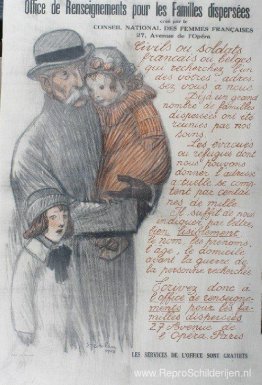 Office de Renseignements pour les Familles dispersées
créé par le
CONSEIL NATIONAL DES FEMMES FRANÇAISES
27, Avenue de l'Opéra
Civils ou soldats
français ou belges
qui recherchez l'un
des vôtres, adres
sez vous à nous
Déjà un grand
nombre de familles
dispersées ont été
réunies par nos
soins.
Les évacués
ou réfugiés dont
nous pouvons
donner l'adresse
actuelle se comp
tent par centai
nes de mille
Il suffit de nous
indiquer par lettre,
bien lisiblement
le nom, les prénoms,
l'âge, le domicile
avant la guerre de
la personne recherchée
Écrivez donc à
l'office de renseigne-
ments pour les fa-
milles dispersées
27 Avenue de
l'Opéra Paris
LES SERVICES DE L'OFFICE SONT GRATUITS
www.ReproSchilderijen.nl